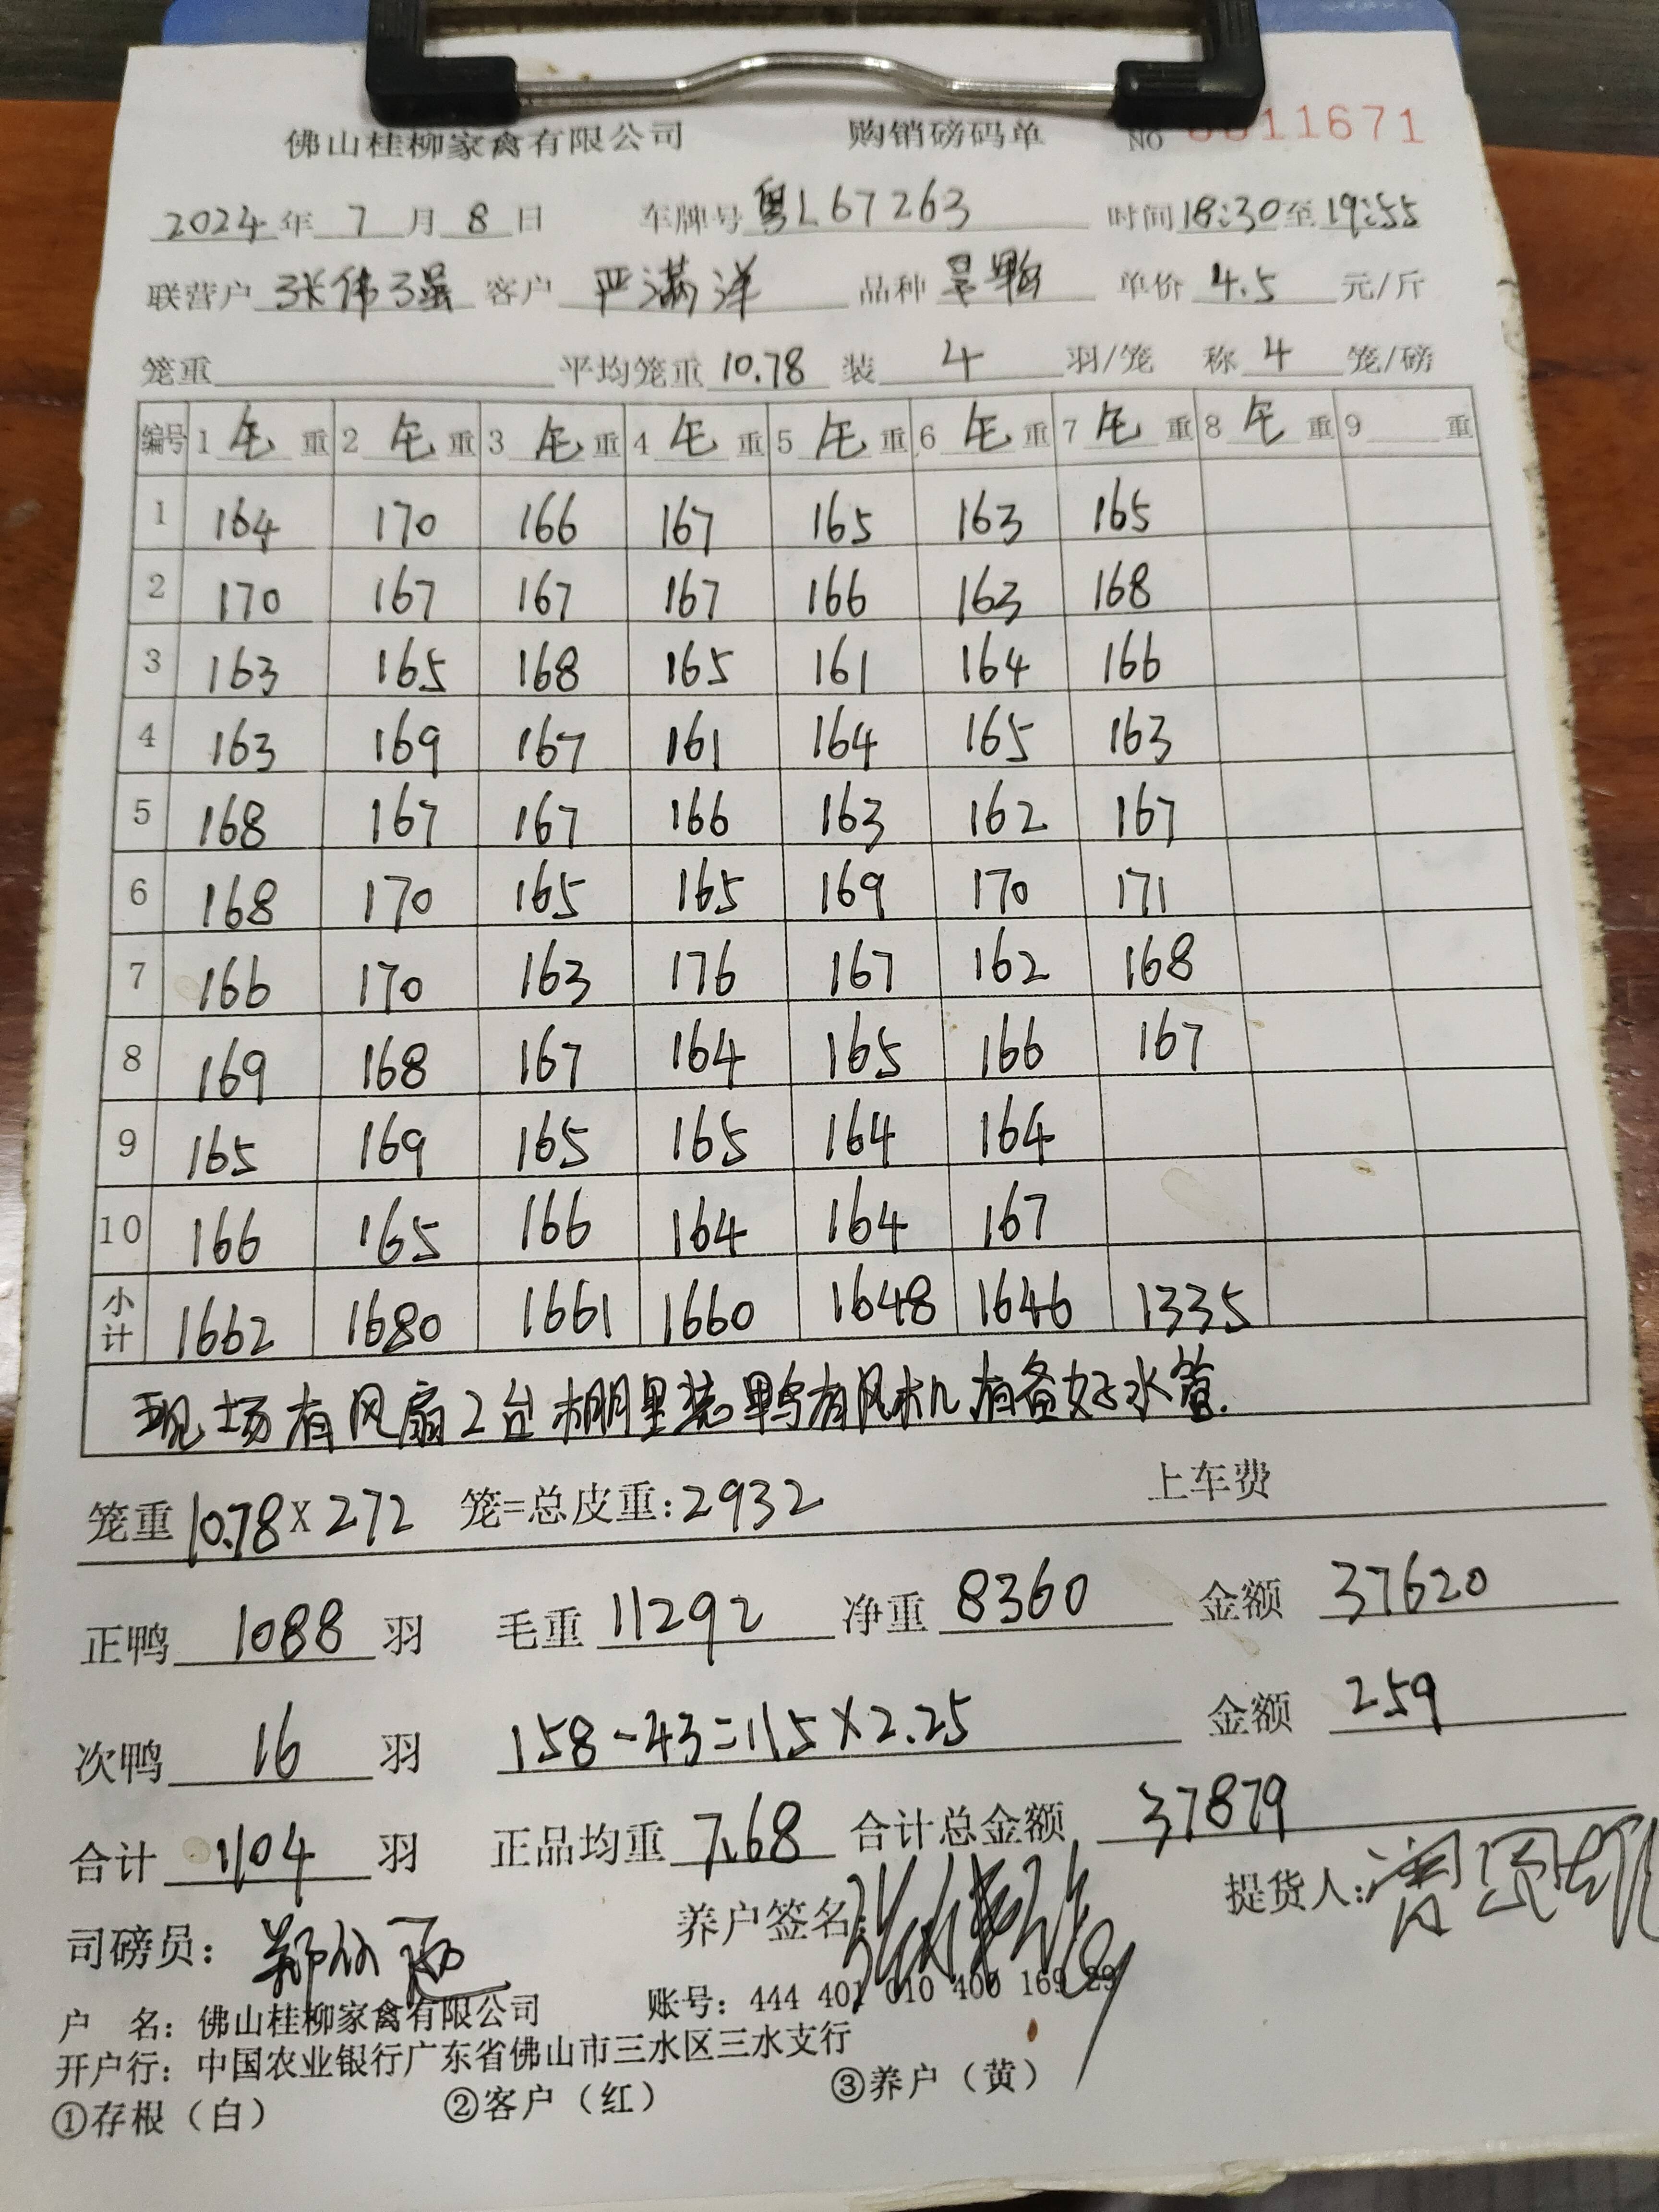 佛山桂柳家禽有限公司 购销磅码单 NO 0011671
2024年 7 月 8 日 车牌号 粤L67263 时间 18:30 至 19:55
联营户 张伟强 客户 严满洋 品种 单价 4.5 元/斤
笼重 平均笼重 10.78 装 4 羽/笼 称 4 笼/磅
编号 1 毛 重 2 毛 重 3 毛 重 4 毛 重 5 毛 重 6 毛 重 7 毛 重 8 毛 重 9 重
1 164 170 166 167 165 163 165
2 170 167 167 167 166 163 168
3 163 165 168 165 161 164 166
4 163 169 167 161 164 165 163
5 168 167 167 166 163 162 167
6 168 170 165 165 169 170 171
7 166 170 163 176 167 162 168
8 169 168 167 164 165 166 167
9 165 169 165 165 164 164
10 166 165 166 164 164 167
小计 1662 1680 1661 1660 1648 1646 1335
现场有风扇2台棚里装鸭有风机有备好水管.
笼重 10.78×272 笼=总皮重:2932 上车费
正鸭 1088 羽 毛重 11292 净重 8360 金额 37620
次鸭 16 羽 158-43=115×2.25 金额 259
合计 1104 羽 正品均重 7.68 合计总金额 37879
司磅员: 养户签名: 提货人:
户 名: 佛山桂柳家禽有限公司 账号: 444 401 010 400 169 29
开户行: 中国农业银行广东省佛山市三水区三水支行
①存根(白) ②客户(红) ③养户(黄)